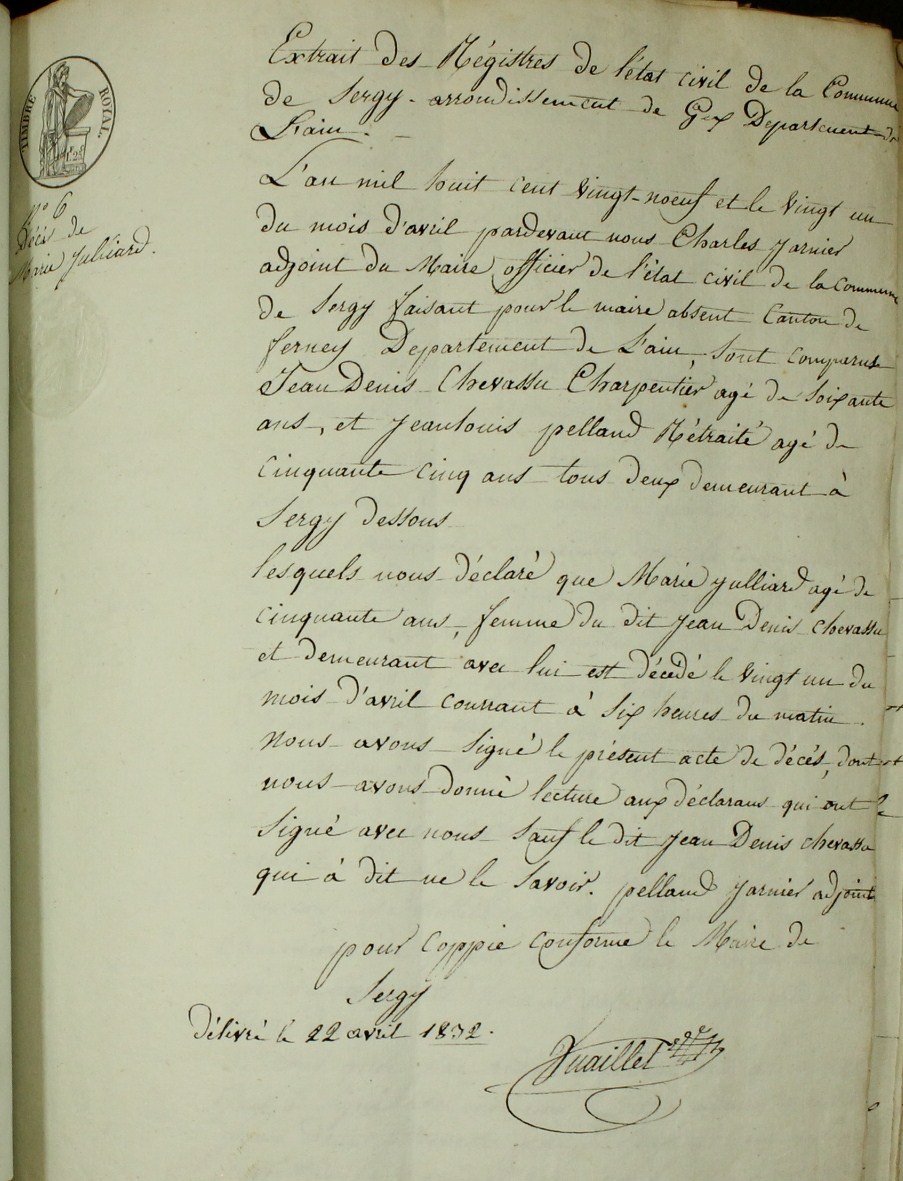 TIMBRE ROYAL.
N° 6
Décès de
Marie Julliard.
Extrait des Régistres de l'état civil de la Commune
de Sergy - arrondissement de Gex Departement de
L'ain. -
L'an mil huit cent vingt-noeuf et le vingt un
du mois d'avril pardevant nous Charles Jarnier
adjoint du Maire officier de l'état civil de la Commune
de Sergy faisant pour le maire absent Canton de
ferney Departement de L'ain, sont comparus
Jean Denis Chevassu Charpentier agé de Soixante
ans, et Jean louis pelland Rétraité agé de
cinquante cinq ans tous deux demeurant à
Sergy dessous
lesquels nous déclaré que Marie Julliard agé de
cinquante ans, femme du dit Jean Denis chevassu
et demeurant avec lui est décédé le vingt un du
mois d'avril courrant à Six heures du matin.
nous avons Signé le présent acte de décés, dont
nous avons donné lecture aux déclarans qui ont
Signé avec nous Sauf le dit Jean Denis chevassu
qui à dit ne le Savoir. pelland Jarnier adjoint
pour coppie conforme le Maire de
Sergy
Délivré le 22 avril 1832.
Vuaillet